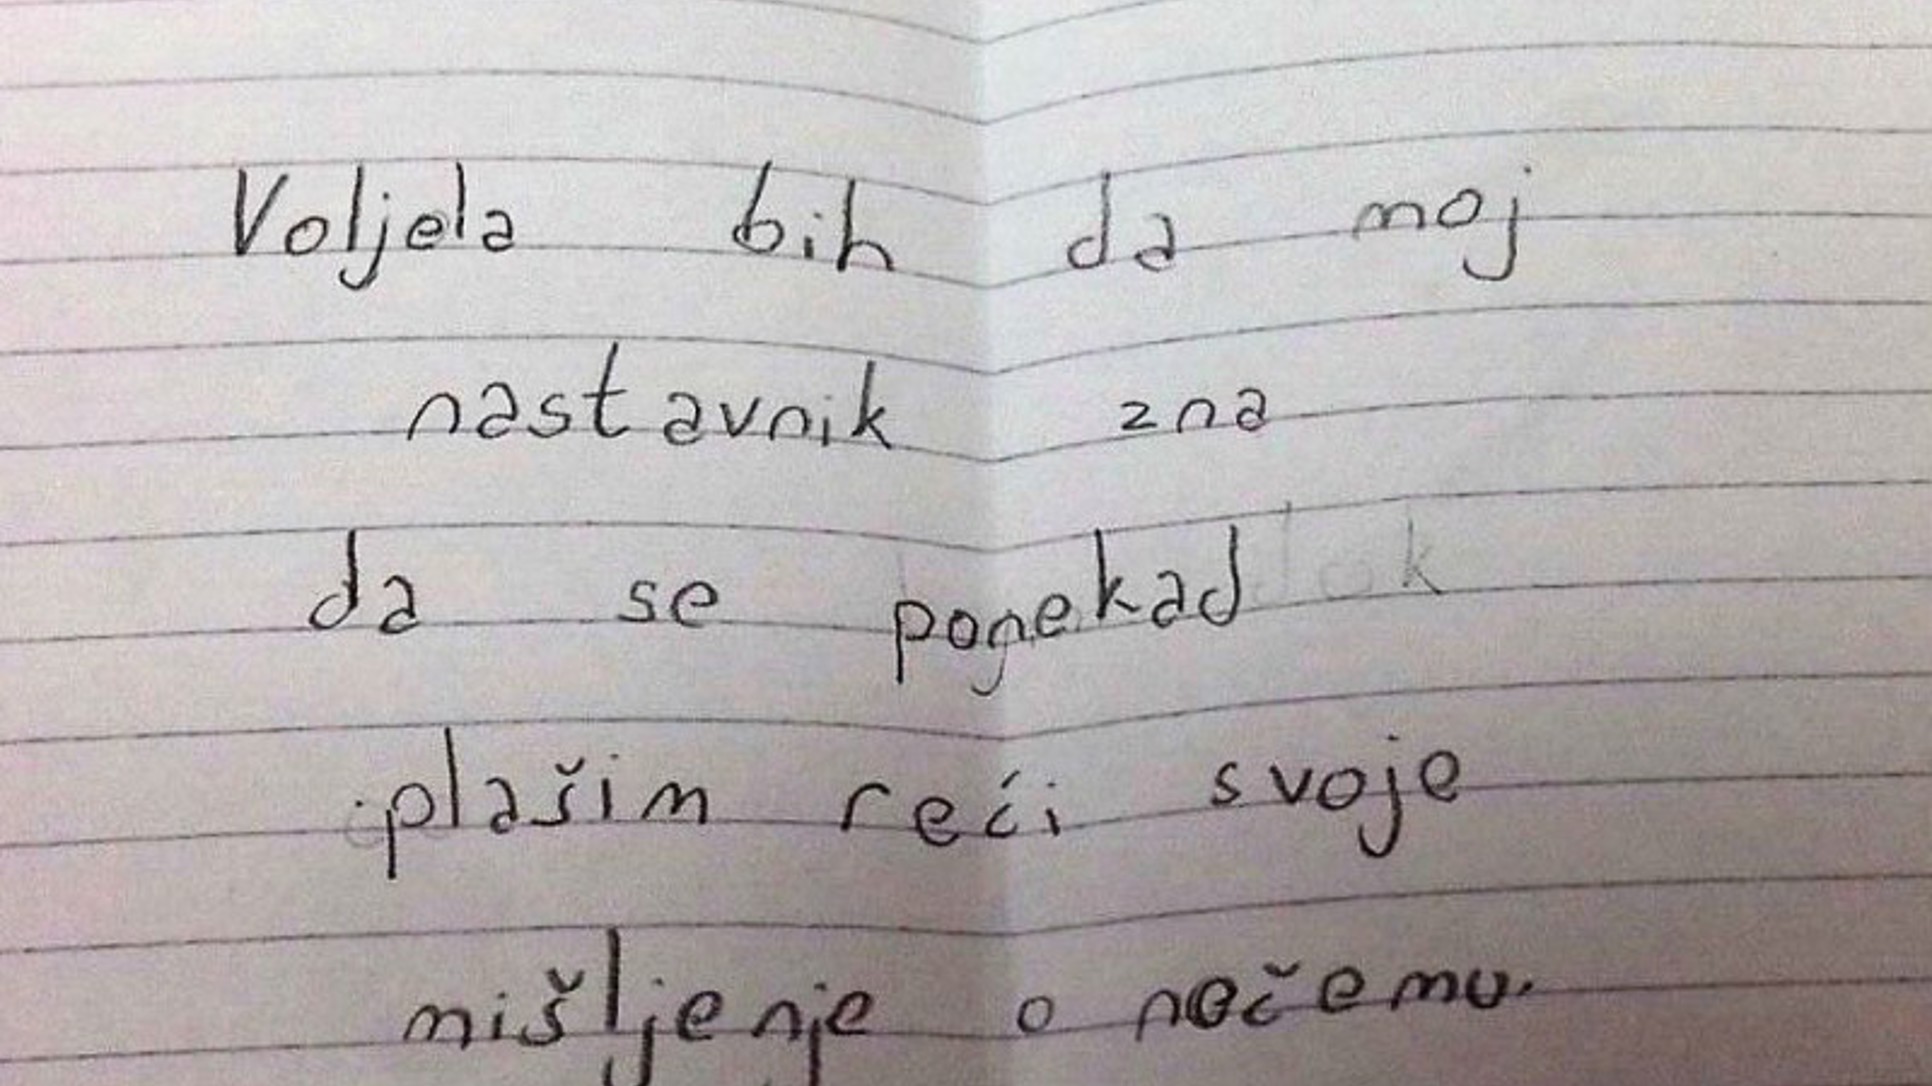 Voljela bih da moj
nastavnik zna
da se ponekad
plašim reći svoje
mišljenje o nečemu.